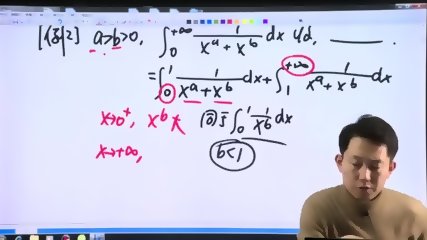 [例2] a>b>0, ∫₀^{+∞} 1/(x^a+x^b) dx 收敛, ______.
=∫₀^1 1/(x^a+x^b) dx + ∫₁^{+∞} 1/(x^a+x^b) dx
x→0⁺, x^b大 同于∫₀^1 1/x^b dx
x→+∞, b<1